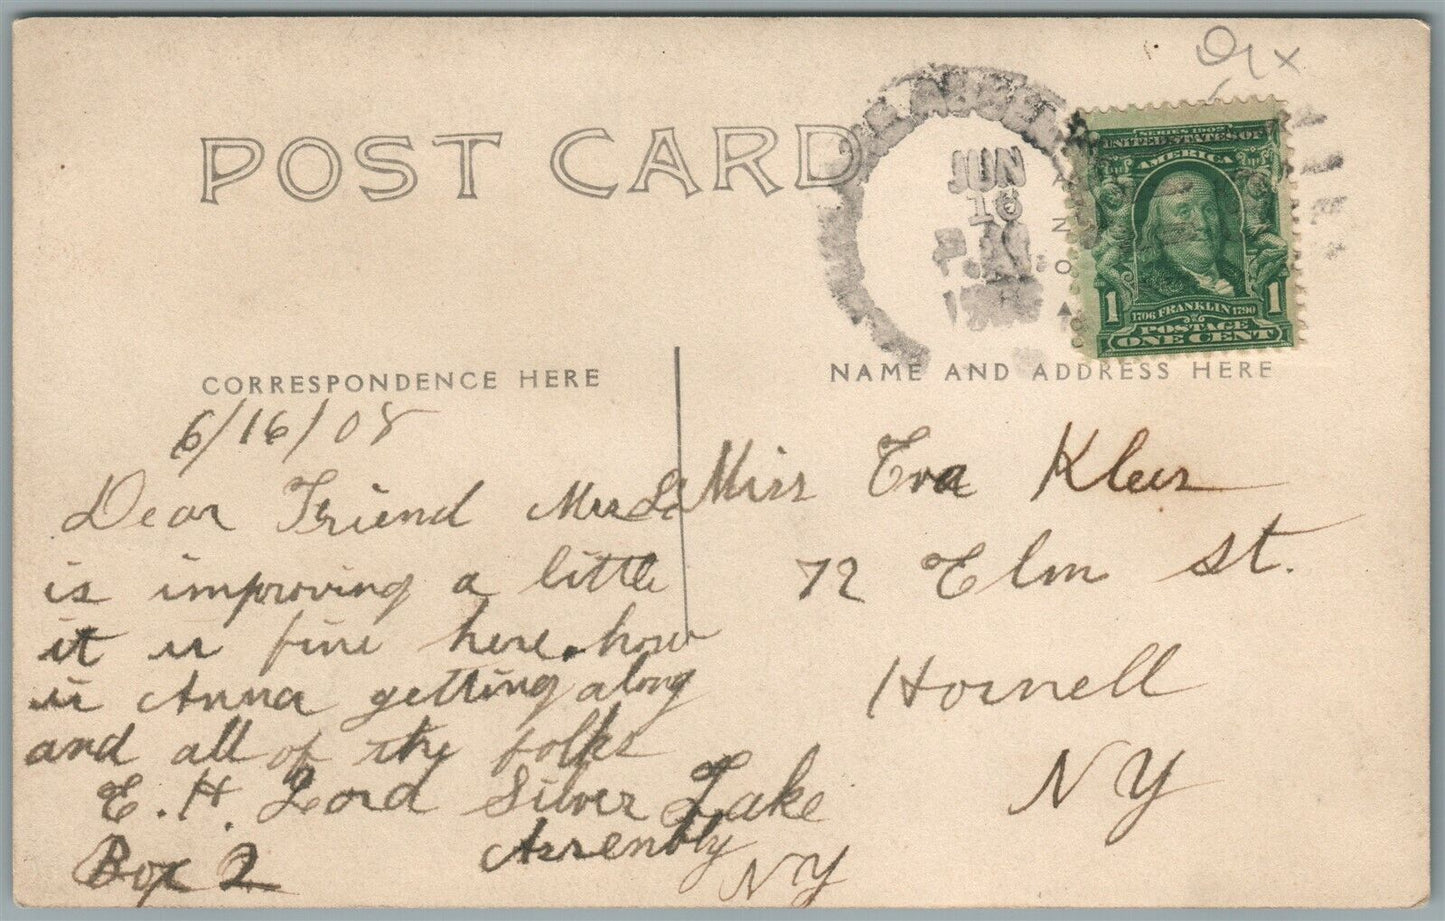 POST CARD
JUN
16
SERIES 1902
UNITED STATES OF
AMERICA
1 1706 FRANKLIN 1790 1
POSTAGE
ONE CENT
CORRESPONDENCE HERE
6/16/08
Dear Friend Mrs
is improving a little
it is fine here. how
is Anna getting along
and all of the folks
E. H. Lord Silver Lake
Assembly
Box 2 NY
NAME AND ADDRESS HERE
Miss Eva Klees
72 Elm St.
Hornell
NY